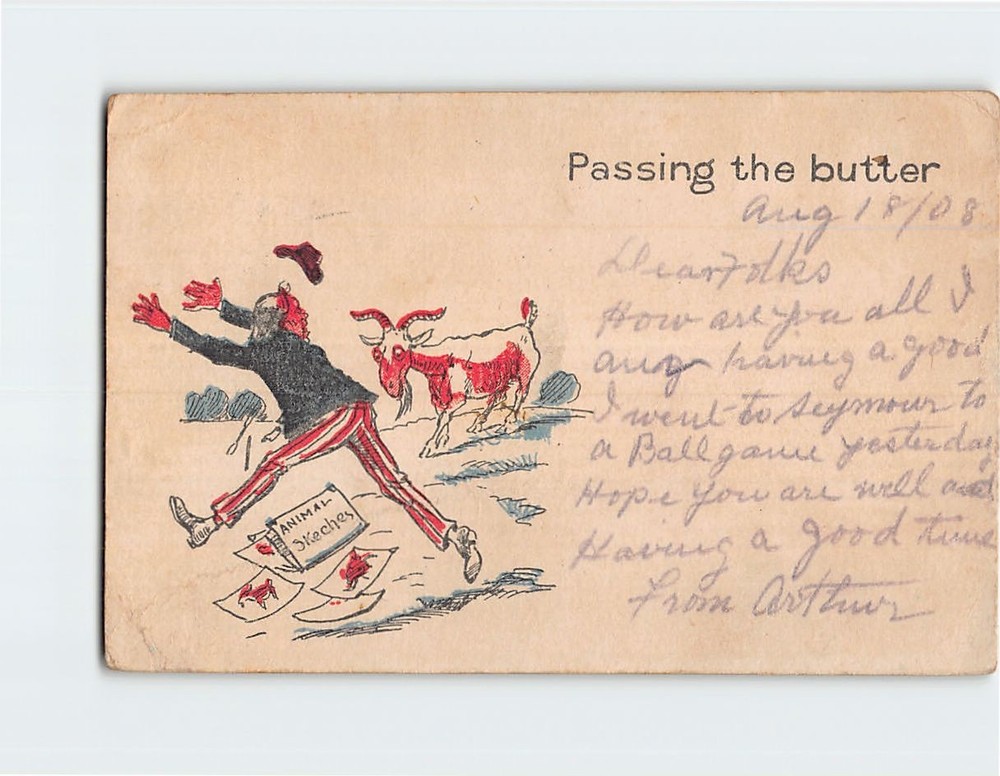 Passing the butter
Aug 18/08
Dear Folks
How are you all I
am having a good
I went to Seymour to
a Ball game yesterday
Hope you are well and
Having a good time
From Arthur
ANIMAL
Skeches